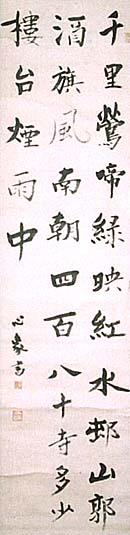 千里鶯啼綠映紅水邨山郭
酒旗風南朝四百八十寺多少
樓台煙雨中